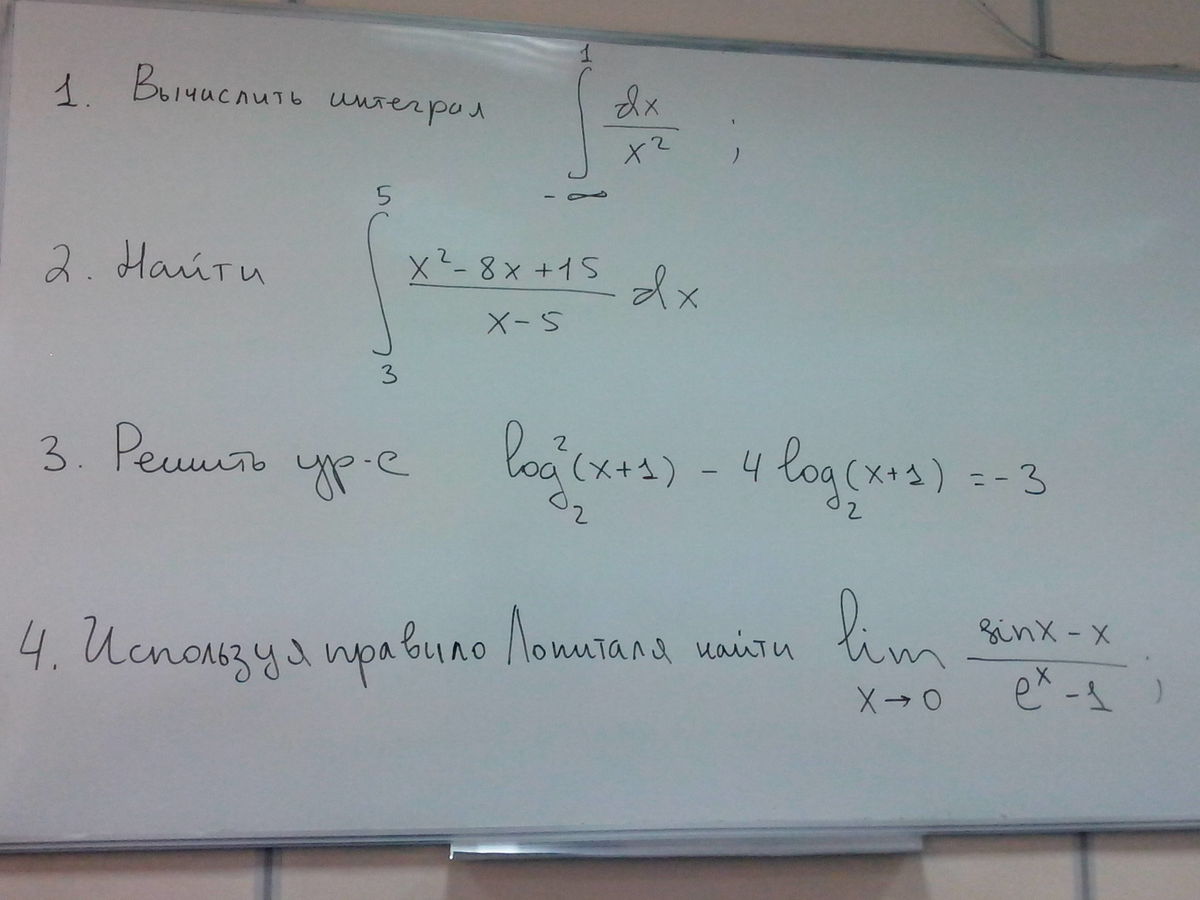 1. Вычислить интеграл ∫_{-∞}^{1} dx/x² ;
2. Найти ∫_{3}^{5} (x²-8x+15)/(x-5) dx
3. Решить ур-е log₂²(x+1) - 4 log₂(x+1) = -3
4. Используя правило Лопиталя найти lim_{x→0} (sinx - x)/(eˣ - 1) ;